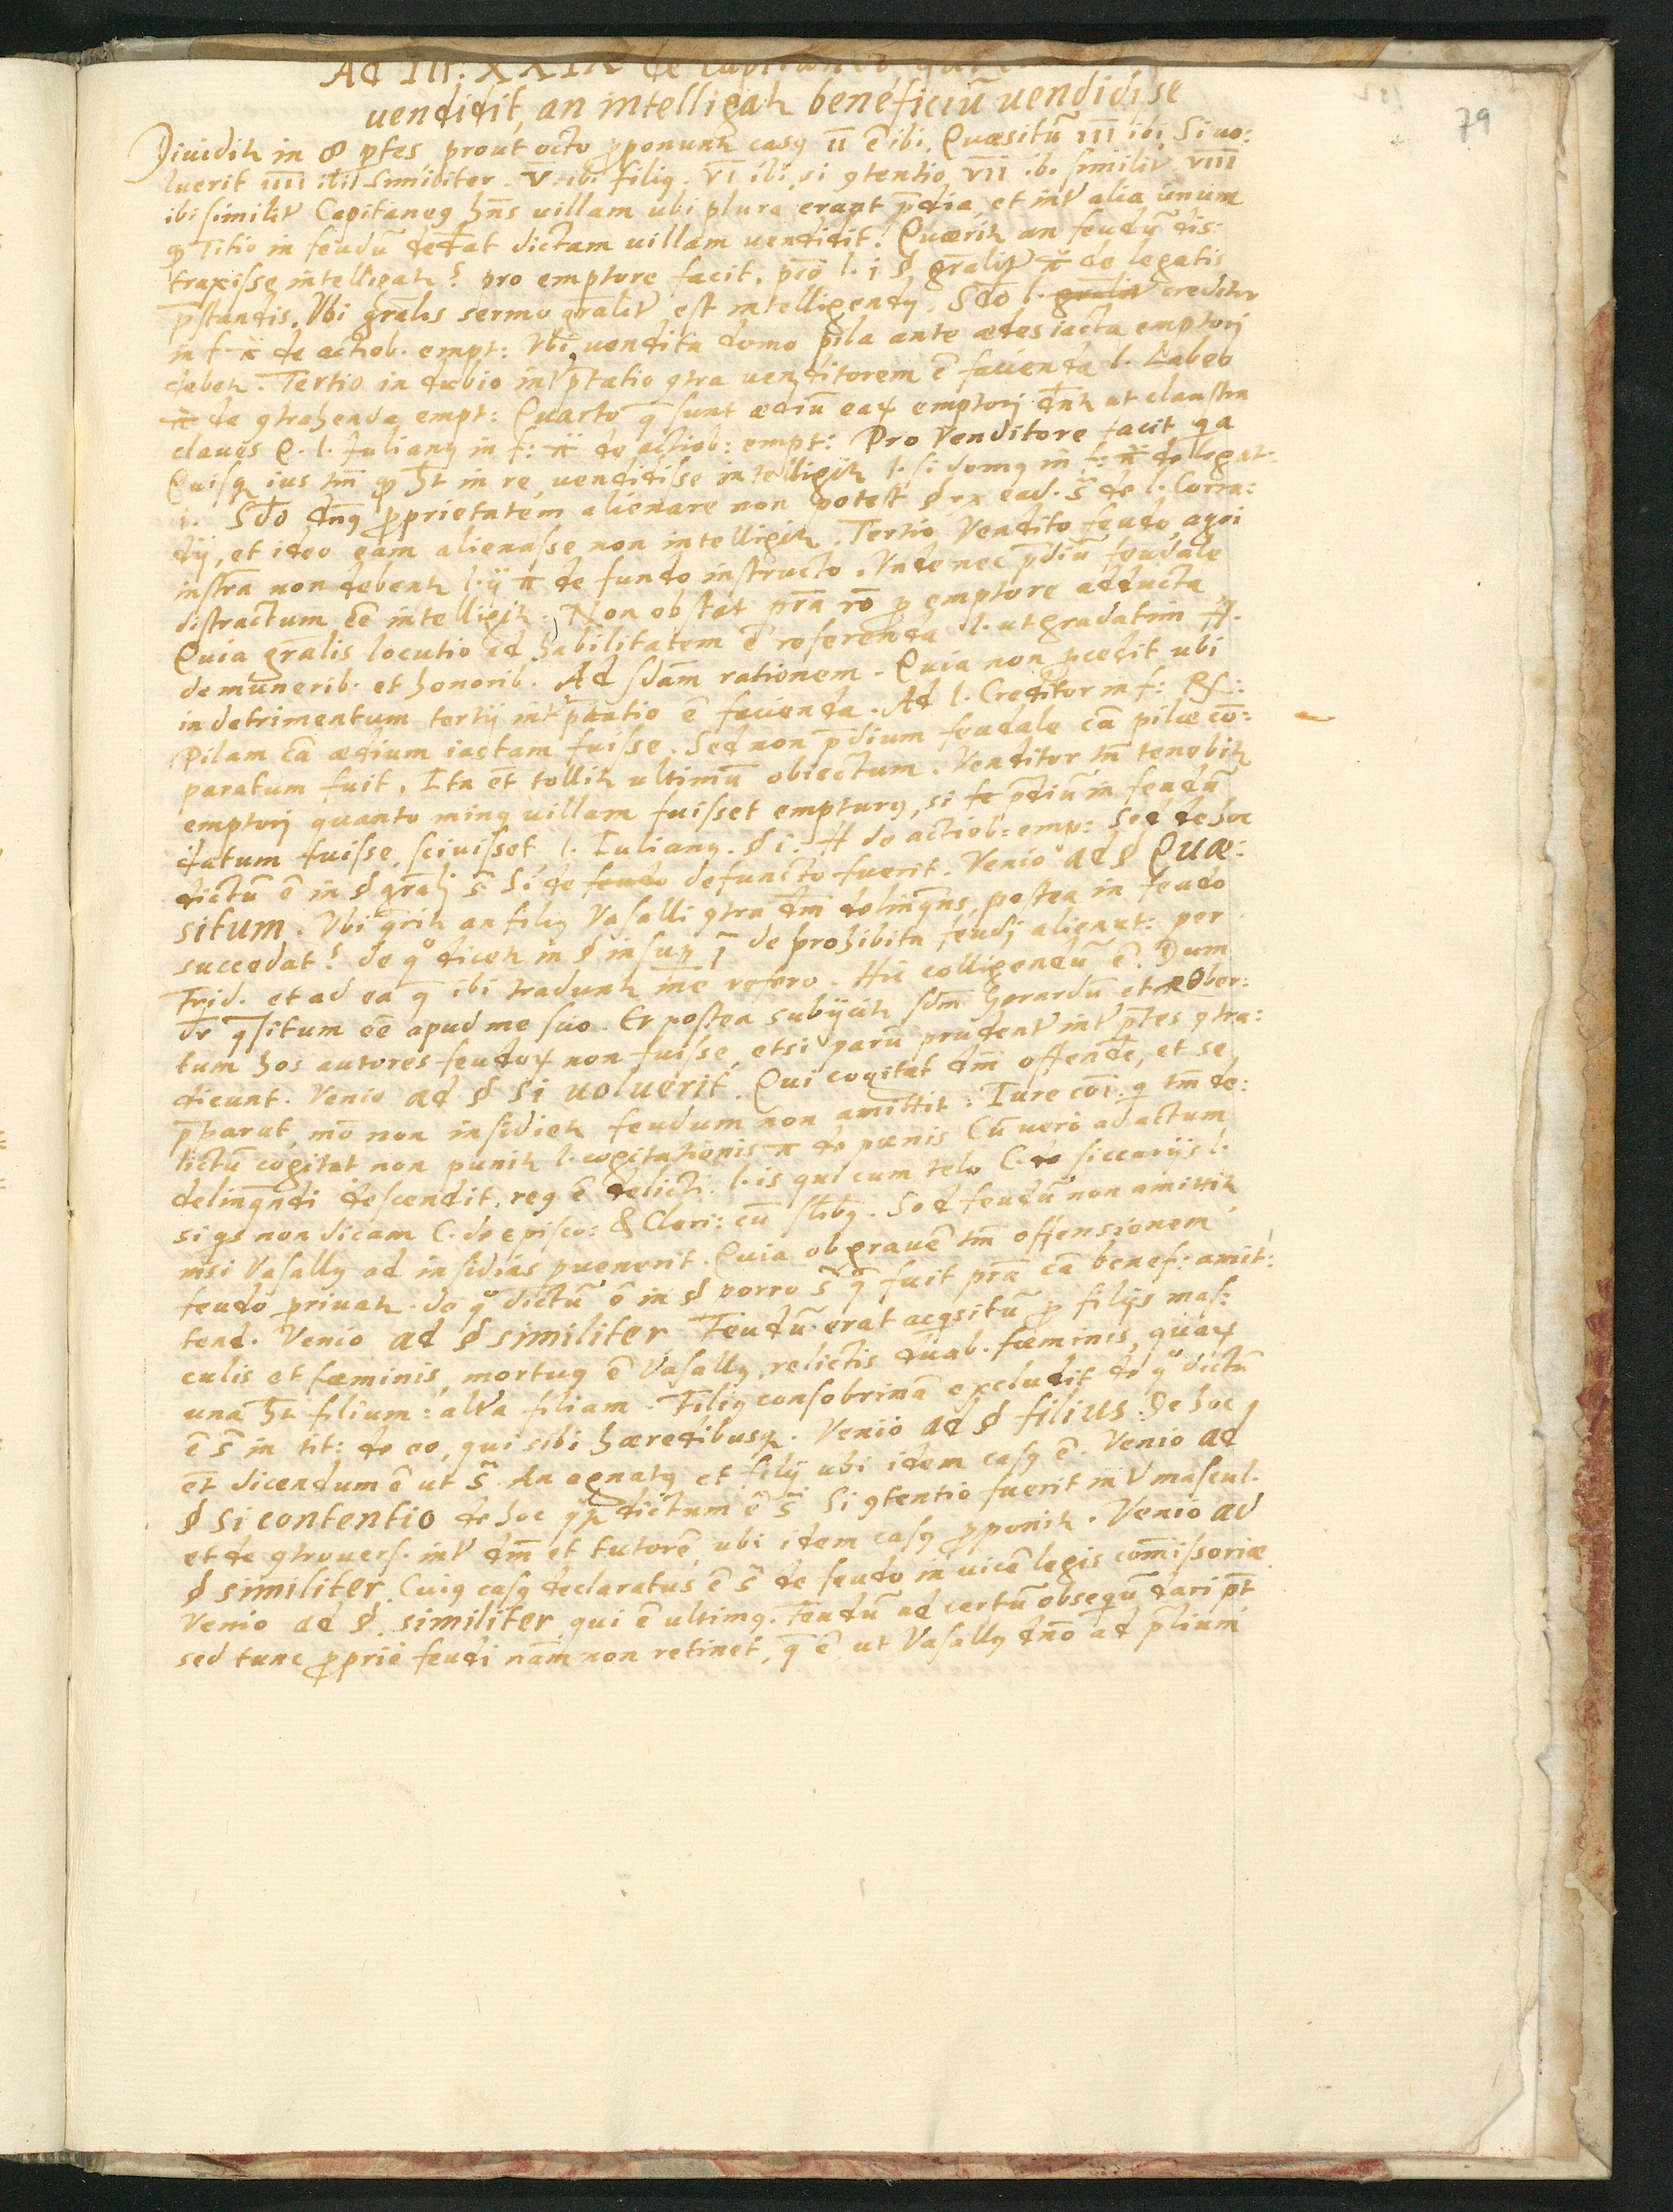 Ad Tit. XXIX de Capitaneo qui
vendidit, an intelligatʳ beneficiū vendidisse
79
Diuiditʳ in 8 ptes, prout octo ꝓponuntʳ casꝰ II ē ibi. Quæsitū III ibi Si uo:
luerit IIII ibi Similiter. V. ibi filiꝰ. VI ibi, si ꝯtentio VII ibi similiť VIII
ibi similiť Capitaneꝰ hn̄s uillam ubi plura erant p̄dia, et inť alia unum
qͩ Titio in feudū dederat dictam uillam uendidit. Quæritʳ an feudū dis-
traxisse intelligatʳ? pro emptore facit. prō l. i § gr̄aliť π de legatis
p̄standis. Vbi gr̄alis sermo gr̄aliť est intelligendꝰ. Sc̄do l. creditor
in f. π de actiob. empt: Vbi uendita domo pila ante ædes iacta emptori
debetʳ. Tertio in dubio inťp̄tatio ꝯtra uenditorem ē facienda l. Labeo
π de ꝯtrahenda empt: Quarto q̄ sunt ædiū eaꝝ emptori dn̄tʳ ut claustra
claues &. l. Iulianꝰ in f: π de actiob: empt: Pro Venditore facit qa
Quisq ius tm̄ qͩ ht̄ in re, uendidisse intelligitʳ l. si domꝰ in f: π de legat:
i. Sc̄do dn̄ꝰ ꝓprietatem alienare non potest § ex ead. s̄ de l. Corra:
dij, et ideo eam alienasse non intelligitʳ. Tertio Vendito feudo, agri
instr̄a non debentʳ l. ij π de fundo instructo. Vnde nec p̄diū feudale
distractum eē intelligitʳ. Non obstat pr̄a rō ꝓ emptore adducta
Quia gr̄alis locutio ad habilitatem ē referenda l. ut gradatim ff.
de munerib. et honorib. Ad sd̄am rationem. Quia non ꝓcedit ubi
in detrimentum tertij inťp̄tatio ē facienda. Ad l. Creditor in f: Rs:
Pilam cā ædium iactam fuisse. Sed non p̄dium feudale cā pilæ cō:
paratum fuit. Ita et̄ tollitʳ ultimū obiectum. Venditor tn̄ tenebitʳ
emptori quanto minꝰ uillam fuisset empturꝰ, si p̄diū in feudū
datum fuisse sciuisset l. Iulianꝰ. § i. ff de actiob: emp: Sed de hoc
dictū ē in § gr̄ali s̄ Si de defuncto fuerit. Venio ad § Quæ:
situm. Vbi q̄ritʳ an filiꝰ Vasalli ꝯtra dn̄m delinqn̄s, postea in feudo
succedat? de qͦ dicetʳ in § insup ī de prohibita feudi alienat: per
Frid. et ad ea q̄ ibi traduntʳ me refero. Hic colligendū ē. Dum
dr̄ q̄situm eē apud me scio. Et postea subijcitʳ sdm̄ Gerardū et Rober:
tum hos autores feudoꝝ non fuisse, etsi parū prudenť inťp̄tes ꝯtra:
dicunt. Venio ad § Si uoluerit. Qui cogitat dn̄m offendē, et se
p̄parat, mō non insidietʳ feudum non amittit. Iure coī. q tm̄ de:
lictū cogitat non punitʳ l. cogitationis π de pænis Cū uero ad actum
delinqn̄di descendit, reꝰ ē delicti. l. is qui cum telo C. de siccarijs l.
si qs non dicam C. de episco: & Cleri: cū siĺibꝰ. Sed feudū non amittitʳ
nisi Vasallꝰ ad insidias puenerit. Quia ob grauē tm̄ offensionem
feudo priuatʳ. de qͦ dictū ē in § porro s̄ q̄ fuit pr̄a cā benef: amit:
tend. Venio ad § similiter Feudū erat acqsitū ꝓ filijs mas:
culis et fœminis, mortuꝰ ē Vasallꝰ, relictis duab. fœminis, quaꝝ
una ht̄ filium: alťa filiam. Filiꝰ consobrinā excludit de qͦ dictū
ē s̄ in tit: de eo, qui sibi hæredibusq. Venio ad § filius. De hoc
et̄ dicendum ē ut s̄ An agnatꝰ et filij ubi idem casꝰ ē. Venio ad
§ Si contentio de hoc dictum ē s̄ Si ꝯtentio fuerit inť mascul.
et de ꝯtrouers. inť dn̄m et tutorē ubi idem casꝰ ꝓponitʳ. Venio ad
§ similiter. Cuiꝰ casꝰ declaratus ē s̄ de feudo in uicē legis com̄issoriæ
Venio ad §. similiter qui ē ultimꝰ. Feudū ad certū obsequiū dari pt̄
sed tunc ꝓprie feudi nām non retinet, q̄ ē, ut Vasallꝰ dn̄o ad p̄lium